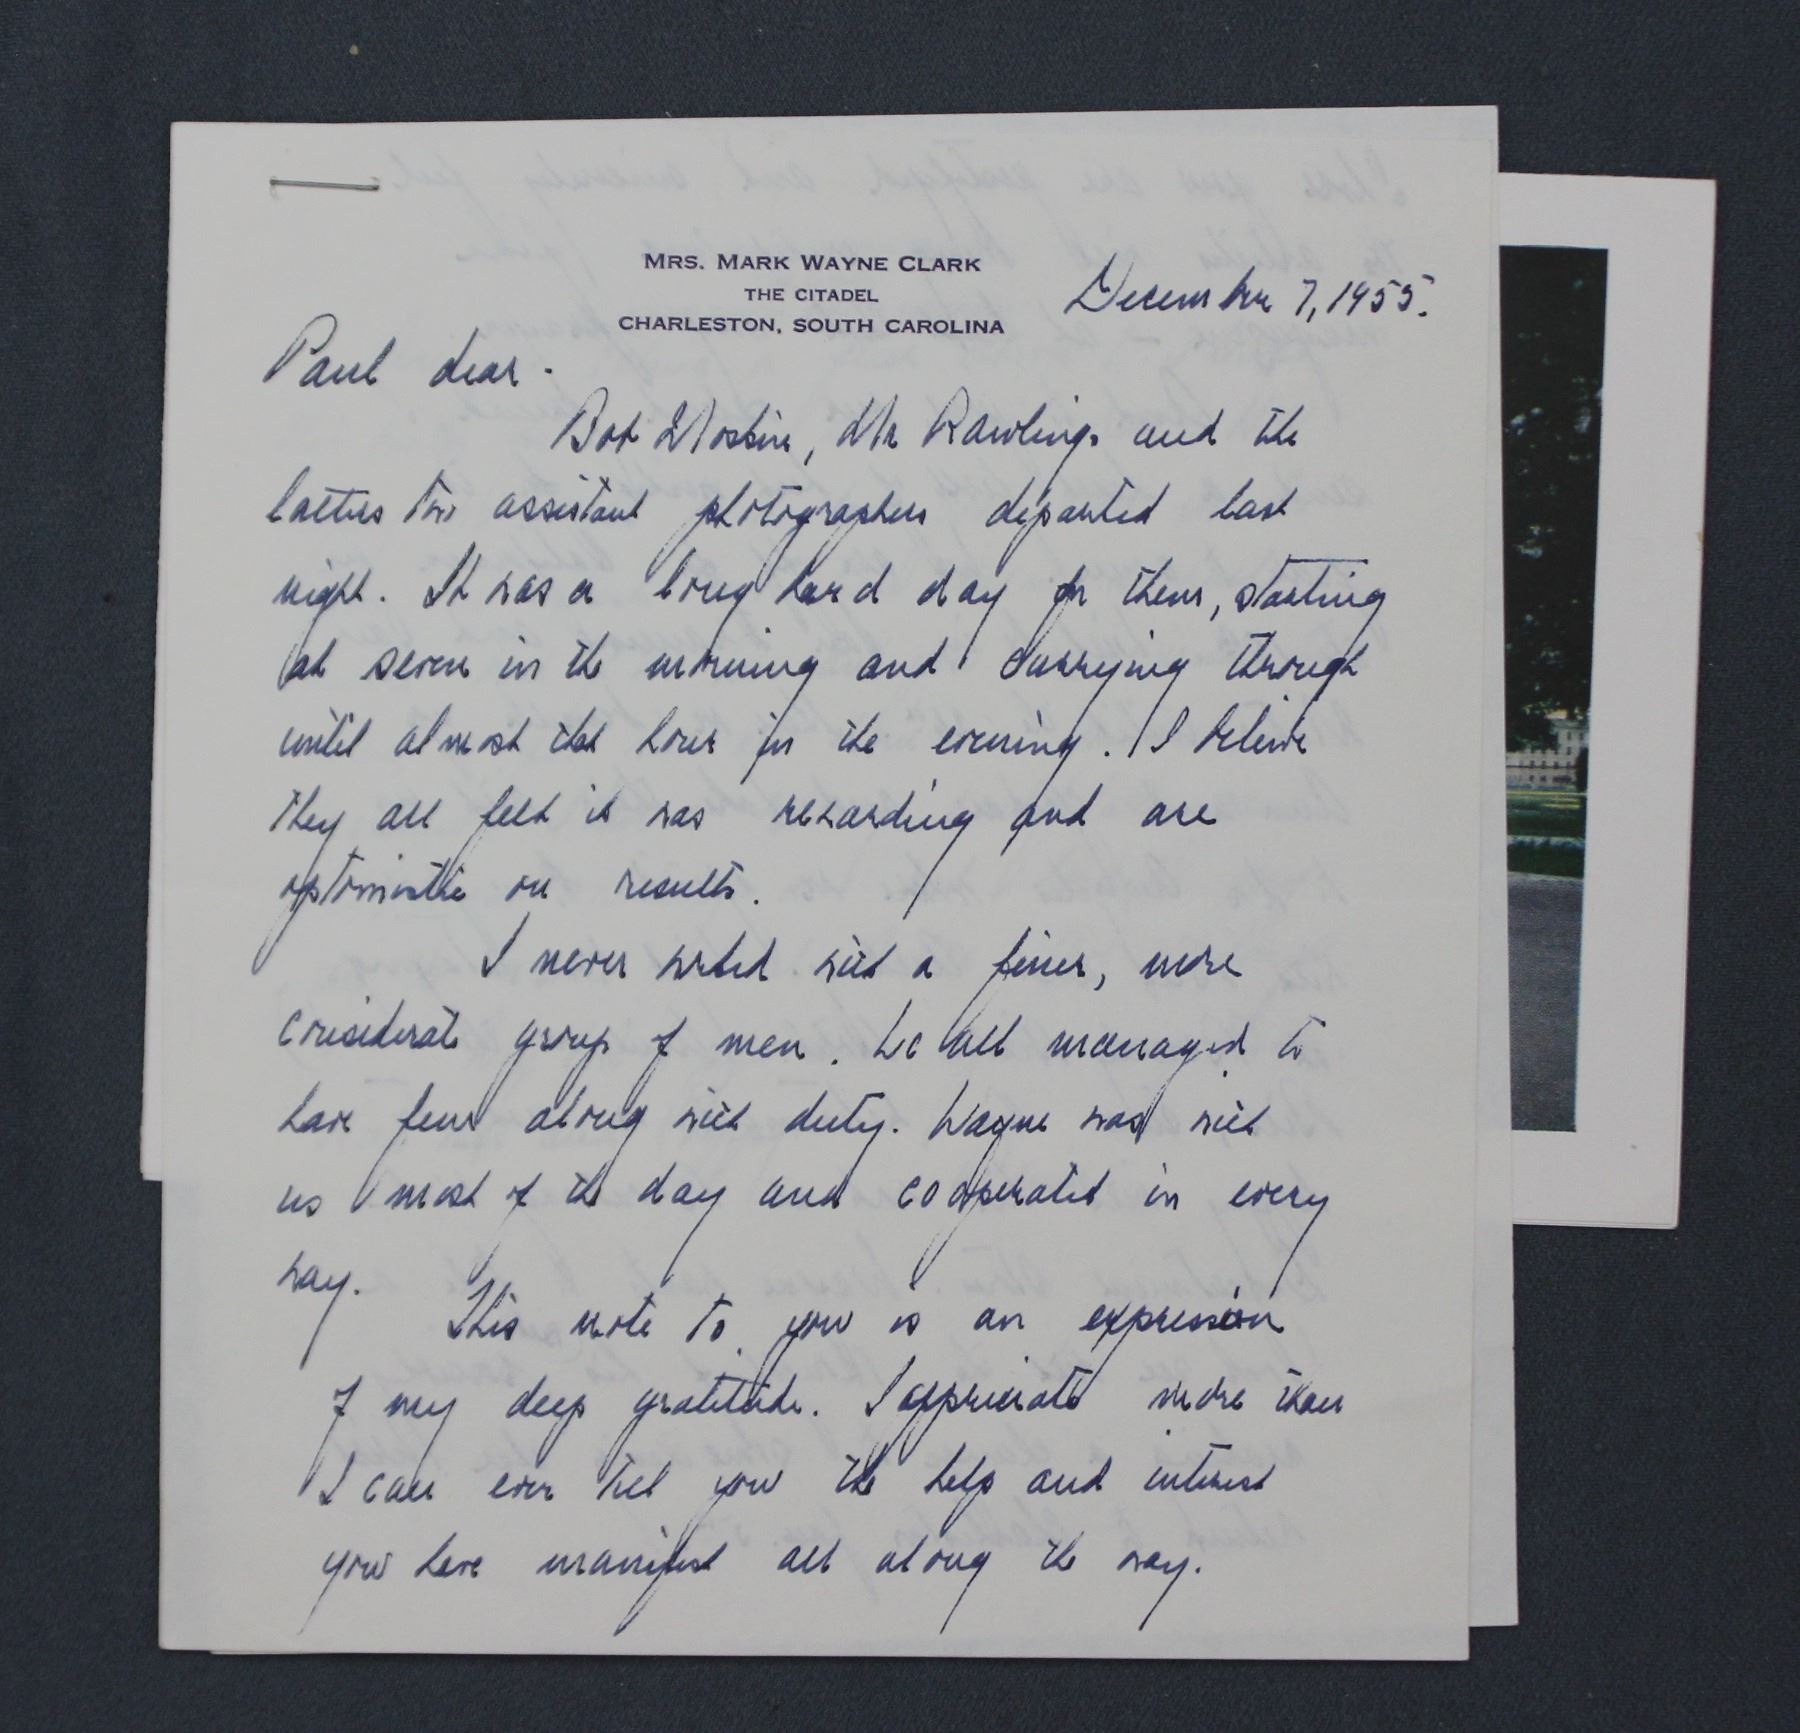 MRS. MARK WAYNE CLARK
THE CITADEL
CHARLESTON, SOUTH CAROLINA
December 7, 1955.
Paul dear.
Bob, Mr Rawlings and the
latters two assistant photographers departed last
night. It was a long hard day for them, starting
at seven in the morning and carrying through
until almost that hour in the evening. I believe
they all felt it was rewarding and are
optomistic on results.
I never worked with a finer, more
considerate group of men. We all managed to
have fun along with duty. Wayne was with
us most of the day and cooperated in every
way.
This note to you is an expression
of my deep gratitude. I appreciate more than
I can ever tell you the help and interest
you have manifest all along the way.